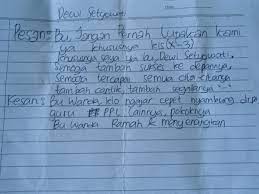 Dewi Setyowati
Pesan: Bu, Jangan Pernah lupakan kami
ya khususnya kls (X-3)
khususnya saya ya bu Dewi Setyowati.
Semoga tambah sukses ke depannya,
Semoga tercapai semua cita-citanya
tambah cantik, tambah segalanya
Kesan: Bu Wanda, klo ngajar cepet nyambung drpd
guru PPL lainnya, pokoknya
Bu Wanda Ramah & menyenangkan